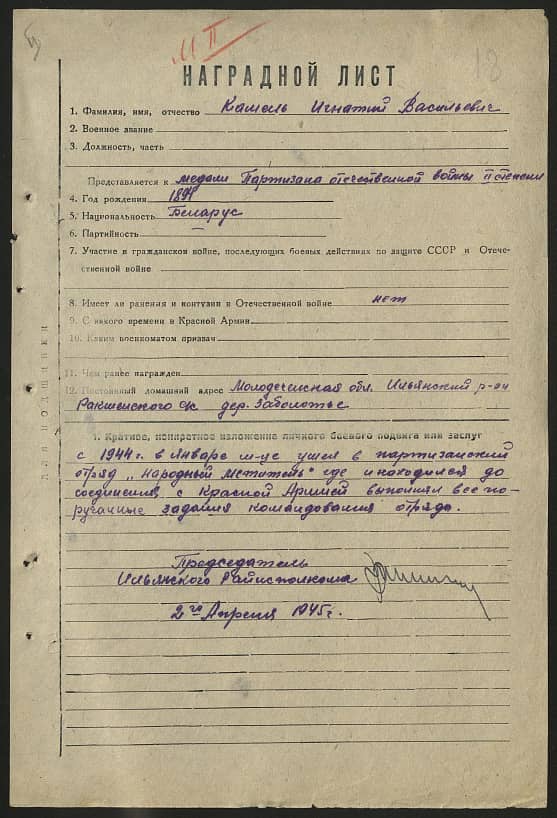 М II
18
НАГРАДНОЙ ЛИСТ
1. Фамилия, имя, отчество Камель Игнатий Васильевич
2. Военное звание
3. Должность, часть
Представляется к медали Партизана отечественной войны II степени
4. Год рождения
5. Национальность Беларус
6. Партийность
7. Участие в гражданской войне, последующих боевых действиях по защите СССР и Отече-
ственной войне
8. Имеет ли ранения и контузии в Отечественной войне нет
9. С какого времени в Красной Армии
10. Каким военкоматом призван
11. Чем ранее награжден
12. Постоянный домашний адрес Молодечненская обл. Ильянский р-он
дер. Заболотье
для подшивки
1. Краткое, конкретное изложение личного боевого подвига или заслуг
с 1944 г. в январе м-це ушел в партизанский
отряд „Народный мститель" где и находился до
соединения с Красной Армией выполнял все по-
ручаные задания командования отряда.
Председатель
Ильянского Райисполкома
2го Апреля 1945 г.